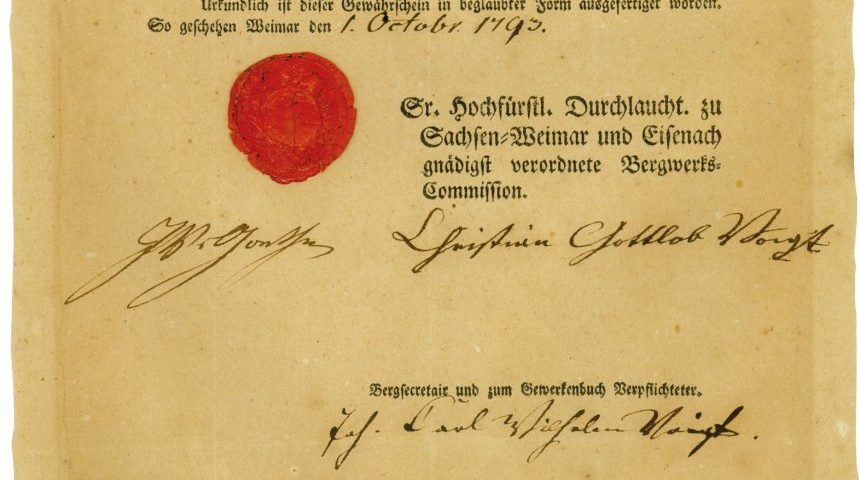 Urkundlich ist dieser Gewährschein in beglaubter Form ausgefertiget worden.
So geschehen Weimar den 1. Octobr. 1793.
Sr. Hochfürstl. Durchlaucht. zu
Sachsen-Weimar und Eisenach
gnädigst verordnete Bergwerks-
Commission.
JWvGoethe
Christian Gottlob Voigt
Bergsecretair und zum Gewerkenbuch Verpflichteter.
Joh. Carl Wilhelm Voigt.